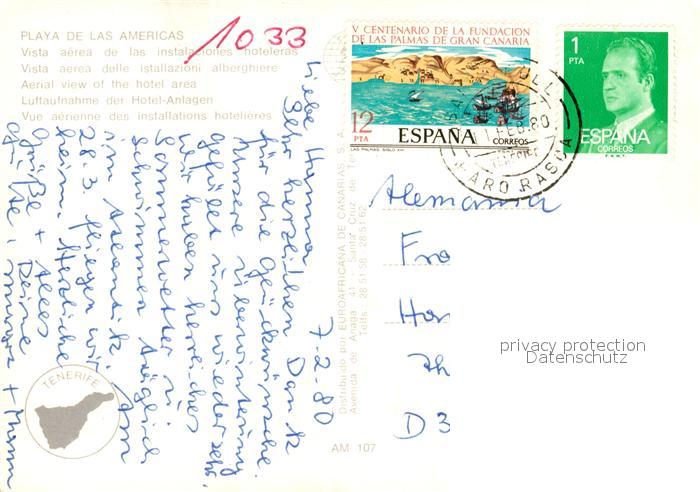 PLAYA DE LAS AMERICAS
Vista aérea de las instalaciones hoteleras
Vista aerea delle istallazioni alberghiere
Aerial view of the hotel area
Luftaufnahme der Hotel-Anlagen
Vue aérienne des installations hotelières
1033
V CENTENARIO DE LA FUNDACION
DE LAS PALMAS DE GRAN CANARIA
12
PTA
ESPAÑA
CORREOS
LAS PALMAS SIGLO XVI
1
PTA
ESPAÑA
CORREOS
F.N.M.T.
1 FEB. 80
TENERIFE
FARO RASCA
7-2-80
Liebe Hanna
Sehr herzlichen Dank
für die Glückwünsche
Unsere Überwinterung
gefällt uns wieder sehr.
Wir haben herrliches
Sommerwetter u.
schwimmen täglich
im Atlantik. Am
28.3. fliegen wir
heim. Herzliche
Grüße + Alles
Deine
Distribuido por EUROAFRICANA DE CANARIAS
Avenida de Anaga 41 - Santa Cruz de
Telfs. 28 51 56 - 28 51 62
Alemania
Fra
Han
D 3
TENERIFE
AM 107
privacy protection
Datenschutz